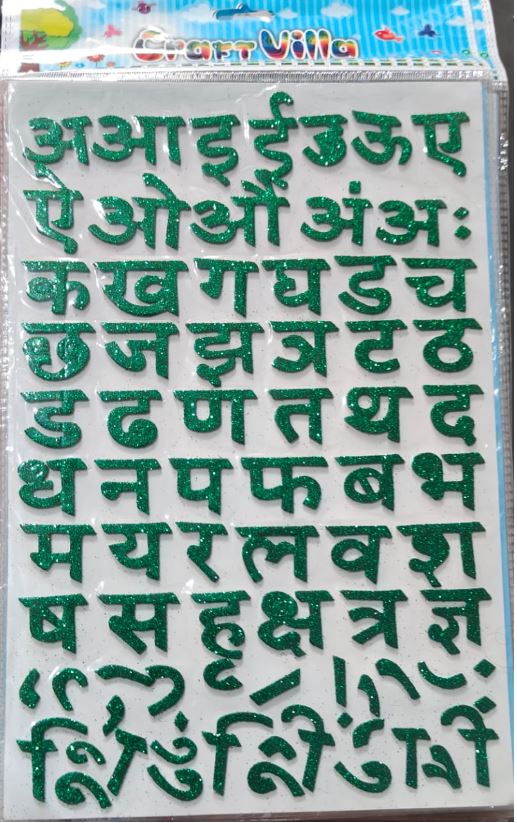 Craft Villa
अ आ इ ई उ ऊ ए
ऐ ओ औ अं अः
क ख ग घ ड च
छ ज झ ञ ट ठ
ड ढ ण त थ द
ध न प फ ब भ
म य र ल व श
ष स हृ क्ष त्र ज्ञ